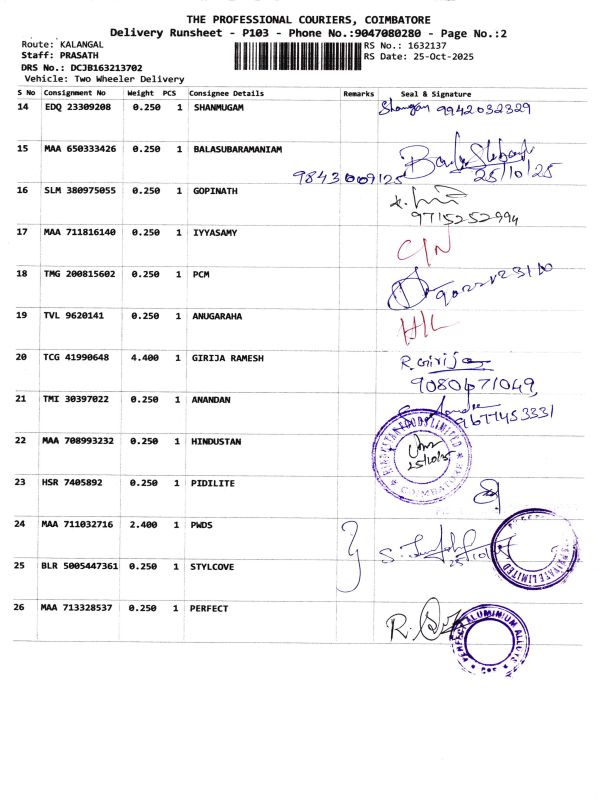 THE PROFESSIONAL COURIERS, COIMBATORE
Delivery Runsheet - P103 - Phone No.:9047080280 - Page No.:2
Route: KALANGAL RS No.: 1632137
Staff: PRASATH RS Date: 25-Oct-2025
DRS No.: DCJB163213702
Vehicle: Two Wheeler Delivery
S No Consignment No Weight PCS Consignee Details Remarks Seal & Signature
14 EDQ 23309208 0.250 1 SHANMUGAM 9942032329
15 MAA 650333426 0.250 1 BALASUBARAMANIAM
9843009125 25/10/25
16 SLM 380975055 0.250 1 GOPINATH
9715252994
17 MAA 711816140 0.250 1 IYYASAMY C/N
18 TMG 200815602 0.250 1 PCM
19 TVL 9620141 0.250 1 ANUGARAHA H/L
20 TCG 41990648 4.400 1 GIRIJA RAMESH R. Girija
9080671049
21 TMI 30397022 0.250 1 ANANDAN
9677453331
22 MAA 708993232 0.250 1 HINDUSTAN
HINDUSTAN FOODS LIMITED
25/10/25
COIMBATORE
23 HSR 7405892 0.250 1 PIDILITE
24 MAA 711032716 2.400 1 PWDS
PRIVATE LIMITED
25 BLR 5005447361 0.250 1 STYLCOVE
26 MAA 713328537 0.250 1 PERFECT
PERFECT ALUMINIUM ALLOYS